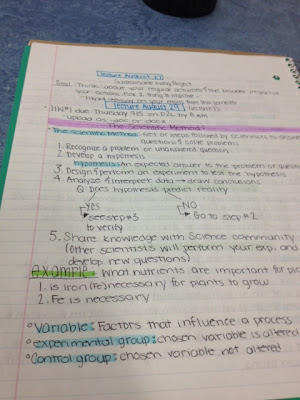 lecture August 27
Sustainable Living Project
Goal: Think about your regular activities & the broader impact of
your actions. Pick 1 thing to improve
lecture August 29
HW#1 due Thursday 9/5 on D2L by 8 am
upload as .doc or .docx
The Scientific Method
The Scientific Method: Set of steps followed by scientists to
questions & solve problems
1. Recognize a problem or unanswered question.
2. Develop a hypothesis
hypothesis: An expected answer to the problem or
3. Design & perform an experiment to test the hypothesis
4. Analyze & interpret data → draw conclusions
Q Does hypothesis predict reality
YES NO
see step #3 Go to step #2
to verify
5. Share knowledge with science community
(Other scientists will perform your exp. and
develop new questions)
Example: What nutrients are important for
1. is Iron (Fe) necessary for plants to grow
2. Fe is necessary
Variable: Factors that influence a process
experimental group: chosen variable is altered
Control group: chosen variable not altered